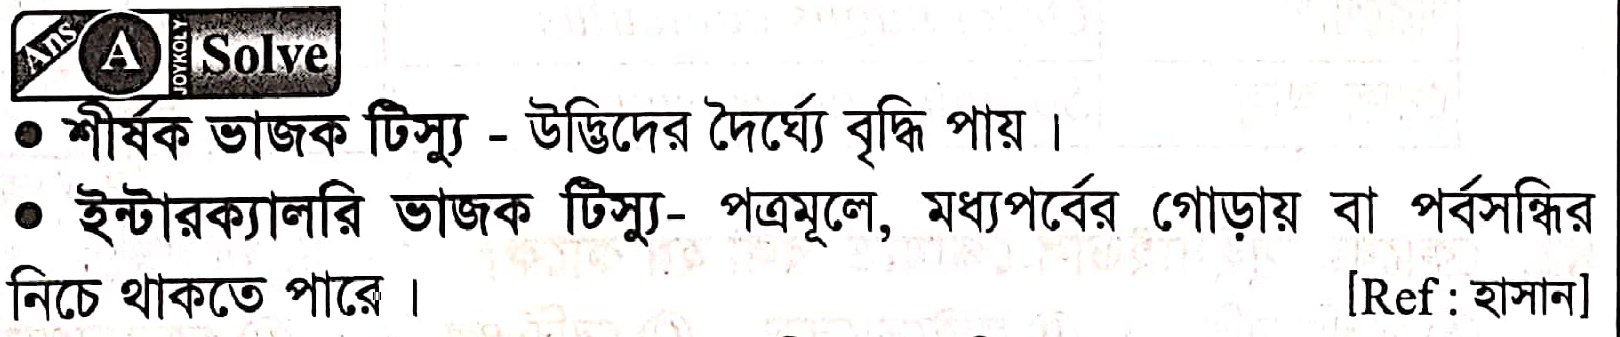 Ans A JOYKOLY Solve
● শীর্ষক ভাজক টিস্যু - উদ্ভিদের দৈর্ঘ্যে বৃদ্ধি পায় ।
● ইন্টারক্যালরি ভাজক টিস্যু- পত্রমূলে, মধ্যপর্বের গোড়ায় বা পর্বসন্ধির
নিচে থাকতে পারে । [Ref : হাসান]